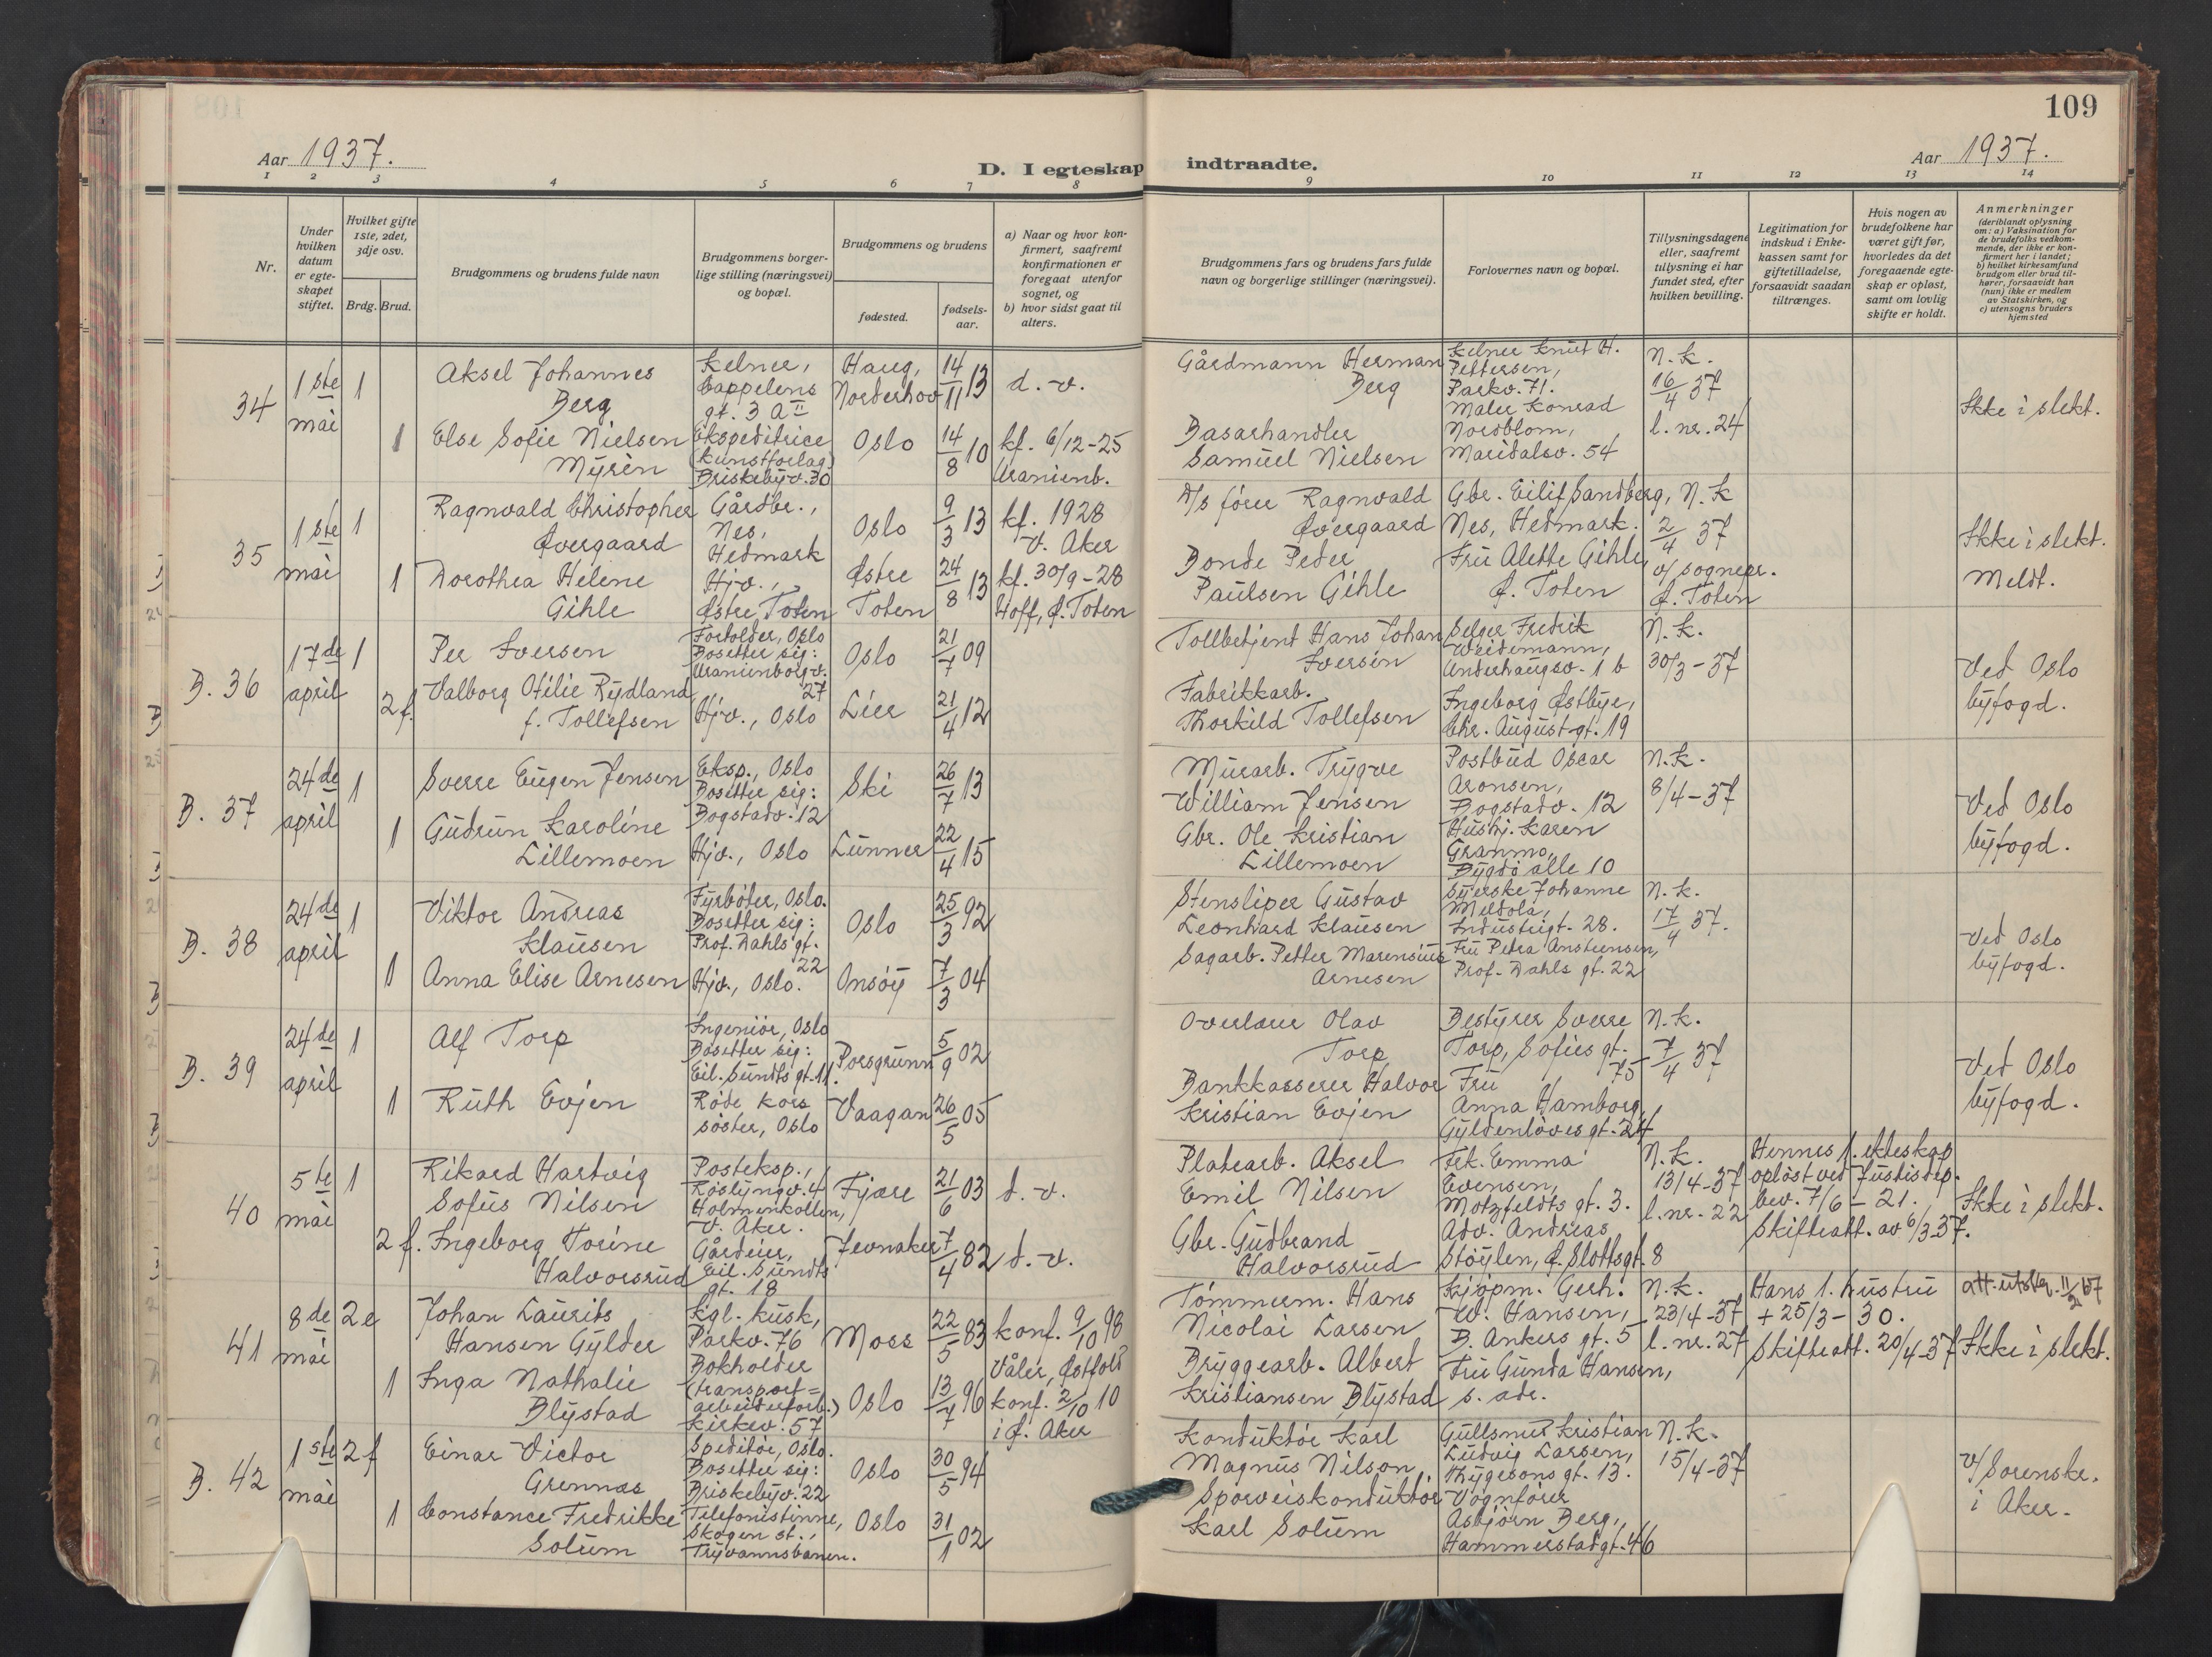 109
Aar 1937.
D. I egteskap indtraadte.
Aar 1937.
1 2 3 4 5 6 7 8 9 10 11 12 13 14
Nr.
Under hvilken datum er egte-skapet stiftet.
Hvilket gifte 1ste, 2det, 3dje osv.
Brdg. Brud.
Brudgommens og brudens fulde navn
Brudgommens borger-lige stilling (næringsvei) og bopæl.
Brudgommens og brudens
fødested.
fødsels-aar.
a) Naar og hvor kon-firmert, saafremt konfirmationen er foregaat utenfor sognet, og
b) hvor sidst gaat til alters.
Brudgommens fars og brudens fars fulde navn og borgerlige stillinger (næringsvei).
Forlovernes navn og bopæl.
Tillysningsdagene eller, saafremt tillysning ei har fundet sted, efter hvilken bevilling.
Legitimation for indskud i Enke-kassen samt for giftetilladelse, forsaavidt saadan tiltrænges.
Hvis nogen av brudefolkene har været gift før, hvorledes da det foregaaende egte-skap er opløst, samt om lovlig skifte er holdt.
Anmerkninger
(deriblandt oplysning om: a) Vaksination for de brudefolks vedkom-mende, der ikke er kon-firmert her i landet;
b) hvilket kirkesamfund brudgom eller brud til-hører, forsaavidt han (hun) ikke er medlem av Statskirken, og
c) utensogns bruders hjemsted
34
1ste mai
1
Aksel Johannes
Berg
Kelner,
Cappelens
gt. 3 A II
Haug,
Norderhov
14/11 13
d. v.
Gårdmann Herman
Berg
Kelner Knut H.
Pettersen,
Parkv. 71.
N.k.
16/4 37
l. nr. 24
Ikke i slekt.
1
Else Sofie Nielsen
Myrén
Ekspeditrice
(kunstforlag)
Briskebyv. 30
Oslo
14/8 10
kf. 6/12-25
Uranienb.
Basarhandler
Samuel Nielsen
Maler Konrad
Nordblom,
Maridalsv. 54
35
1ste mai
1
Ragnvald Christopher
Øvergaard
Gårdbr.,
Nes,
Hedmark
Oslo
9/3 13
kf. 1928
V. Aker
D/s fører Ragnvald
Øvergaard
Gbr. Eilif Sandberg,
Nes, Hedmark.
N.k
2/4 37
v/ sognepr.
Ø. Toten
Ikke i slekt.
Meldt.
1
Dorothea Helene
Gihle
Hjv.,
Østre Toten
Østre
Toten
24/8 13
kf. 30/9-28
Hoff, Ø. Toten
Bonde Peder
Paulsen Gihle
Fru Alette Gihle,
Ø. Toten
B. 36
17de april
1
Per Iversen
Forholder, Oslo
Bosetter sig:
Uranienborgv.
27
Oslo
21/7 09
Tollbetjent Hans Johan
Iversen
Selger Fredrik
Weidemann,
Underhaugsv. 1 b
N.k.
30/3-37
Ved Oslo
byfogd.
2 f.
Valborg Otilie Rydland
f. Tollefsen
Hjv., Oslo
Lier
21/4 12
Fabrikkarb.
Thorkild Tollefsen
Ingeborg Østbye,
Chr. August-gt. 19
B. 37
24de april
1
Sverre Eugen Jensen
Eksp., Oslo
Bosetter sig:
Bogstadv. 12
Ski
26/7 13
Murarb. Trygve
William Jensen
Postbud Oscar
Aronsen,
Bogstadv. 12
N.k.
8/4-37
Ved Oslo
byfogd.
1
Gudrun Karoline
Lillemoen
Hjv., Oslo
Lunner
22/4 15
Gbr. Ole Kristian
Lillemoen
Hushj. Karen
Granmo,
Bygdö alle 10
B. 38
24de april
1
Viktor Andreas
Klausen
Fyrböter, Oslo.
Bosetter sig:
Prof. Dahls gt.
22
Oslo
25/3 92
Stensliper Gustav
Leonhard Klausen
Syerske Johanne
Meldola,
Industrigt. 28.
N.k.
17/4 37.
Ved Oslo
byfogd.
1
Anna Elise Arnesen
Hjv., Oslo.
Onsöy
7/3 04
Sagarb. Petter Marensius
Arnesen
Fru Petra Anstensen,
Prof. Dahls gt. 22
B. 39
24de april
1
Alf Torp
Ingeniör, Oslo
Bosetter sig:
Eil. Sundts gt. 11.
Porsgrunn
5/9 02
Overlærer Olav
Torp
Bestyrer Sverre
Torp, Sofies gt.
75
N.k.
7/4 37
Ved Oslo
byfogd.
1
Ruth Evjen
Röde Kors
söster, Oslo
Vaagan
26/5 05
Bankkasserer Halvor
Kristian Evjen
Fru
Anna Hamborg,
Gyldenlöves gt. 24
40
5te mai
1
Rikard Hartvig
Sofus Nilsen
Posteksp.,
Röslyngv. 4
Holmenkollen,
V. Aker.
Fjære
21/6 03
d. v.
Platearb. Aksel
Emil Nilsen
Frk. Emma
Evensen,
Motzfeldts gt. 3.
N.k.
13/4-37
l. nr. 22
Hennes 1. ekteskap
opløst ved Justisdep.
bev. 7/6-21.
Skifteatt. av 6/3-37.
Ikke i slekt.
2 f.
Ingeborg Torine
Halvorsrud
Gårdeier,
Eil. Sundts
gt. 18
Jevnaker
7/4 82
d. v.
Gbr. Gudbrand
Halvorsrud
Adv. Andreas
Stöylen, Ø. Slottsgt. 8
41
8de mai
2 e
Johan Laurits
Hansen Gylder
Kgl. kusk,
Parkv. 76
Moss
22/5 83
konf. 9/10 98
Våler, Østfold
Tömmerm. Hans
Nicolai Larsen
Kjöpm. Gerh.
W. Hansen,
B. Ankers gt. 5
N.k.
23/4-37
l. nr. 27
Hans 1. hustru
+ 25/3-30.
Skifteatt. 20/4-37
att. utsted. 11/2 57
Ikke i slekt.
1
Inga Nathalie
Blystad
Bokholder
(transport=
arbeiderforb.)
Kirkev. 57
Oslo
13/7 96
konf. 2/10 10
i Ø. Aker
Bryggearb. Albert
Kristiansen Blystad
Fru Gunda Hansen,
s. adr.
B. 42
1ste mai
2 f
Einar Victor
Grennæs
Speditör, Oslo.
Bosetter sig:
Briskebyv. 22
Oslo
30/5 94
Konduktör Karl
Magnus Nilson
Gullsmed Kristian
Ludvig Larsen,
Thygesons gt. 13.
N.k.
15/4-37
v/ Sorenskr.
i Aker.
1
Constance Fredrikke
Solum
Telefonistinne,
Skogen st.,
Tryvannsbanen.
Oslo
31/1 02
Sporveiskonduktör
Karl Solum
Vognförer
Asbjörn Berg,
Hammerstadgt. 46